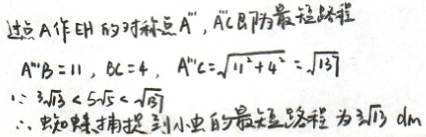 过点A作EH的对称点A''', A'''C即为最短路程
A'''B=11, BC=4, A'''C=√11²+4²=√137
∵ 3√13<5√5<√137
∴ 蜘蛛捕捉到小虫的最短路程为3√13 dm